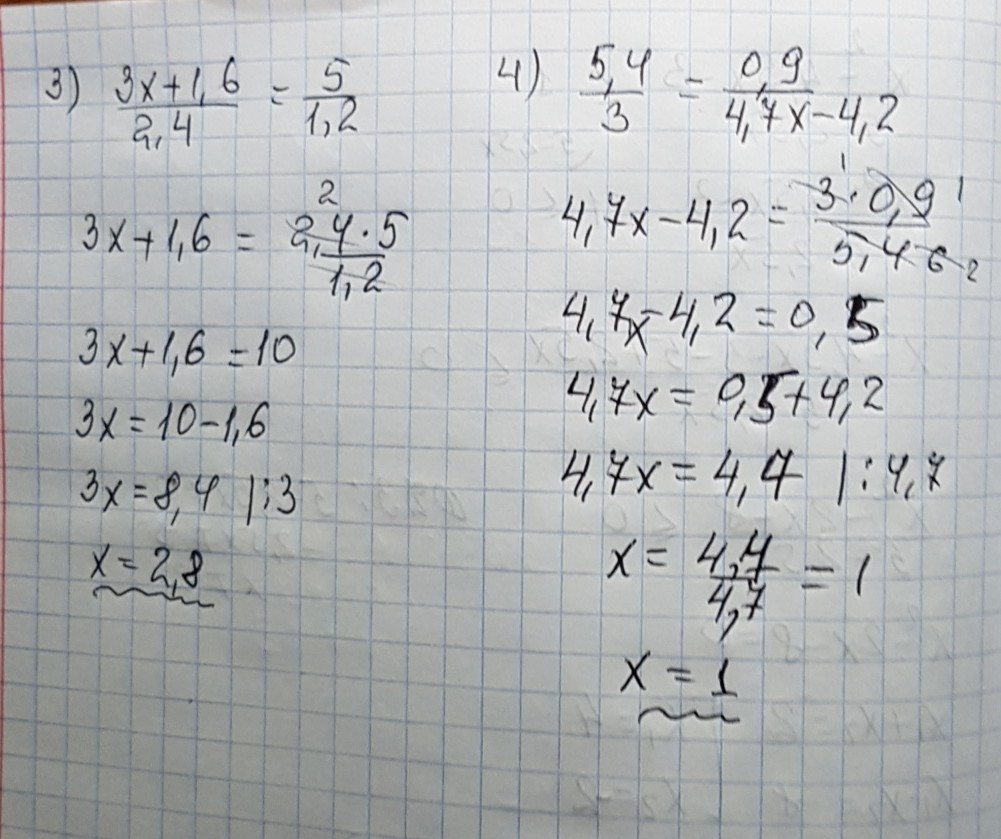 3) (3x+1,6)/(2,4) = 5/(1,2)
3x+1,6 = (2,4·5)/(1,2) 2
3x+1,6 = 10
3x = 10-1,6
3x = 8,4 |:3
x = 2,8
4) (5,4)/3 = (0,9)/(4,7x-4,2)
4,7x-4,2 = (3·0,9)/(5,4) 1 1 6 2
4,7x-4,2 = 0,5
4,7x = 0,5+4,2
4,7x = 4,7 |:4,7
x = (4,7)/(4,7) = 1
x = 1